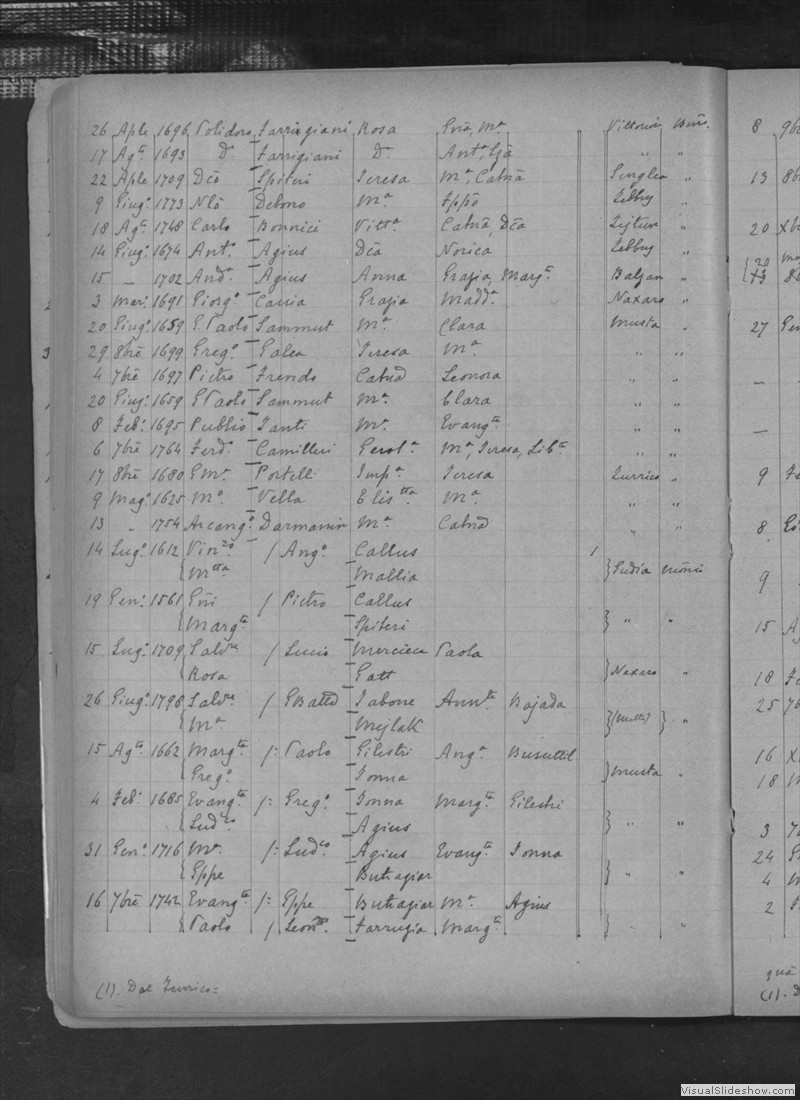 26 Aple 1696 Polidoro Farrigiani Rosa Gnā, Mª Vittoria Birñ.
17 Agᵗᵒ 1693 Dº Farrigiani Dº Antª, Gjā " "
22 Aple 1709 Dcō Spiteri Teresa Mª, Catnā Senglea "
9 Giugº 1773 Nlō Debono Mª Fppō Zebbug "
18 Agᵗᵒ 1748 Carlo Bonnici Vittª Catnā, Dcā Zejtun "
14 Giugº 1674 Antº Agius Dcā Norica Zebbug "
15 — 1702 Andª Agius Anna Grazia, Margᵗᵃ Balzan "
3 Mar: 1691 Giorgº Caruia Grazia Maddª Naxaro "
20 Giugº 1659 G Paolo Sammut Mª Clara Musta "
29 8bre 1699 Gregº Galea Teresa Mª " "
4 7bre 1697 Pietro Frendo Catnā Leonora " "
20 Giugº 1659 G Paolo Sammut Mª Clara " "
8 Feb: 1695 Publio Fanti Mª Evangᵗᵃ " "
6 7bre 1764 Ferdº Camilleri Gerolª Mª, Teresa, Libᵗᵃ " "
17 8bre 1680 G Mª Portelli Impª Teresa Zurrico "
9 Magº 1625 Mº Vella Elisᵗᵗᵃ Mª " "
13 " 1754 Arcangº Darmanin Mª Catnā " "
14 Lugº 1612 Vinᶻº / Angº Callus 1
{ Mᵗᵗᵃ Mallia } Gudia
19 Gen: 1561 Gñi / Pietro Callus
{ Margᵗᵃ Spiteri } " "
15 Lugº 1709 Salvʳᵉ / Lucio Mercieca Paola
{ Rosa Gatt } Naxaro "
26 Giugº 1798 Salvʳᵉ / GBattā Tabone Annᵗᵃ Bajada
{ Mª Mejlak } "
15 Agᵗᵒ 1662 Margᵗᵃ /: Paolo Gilestri Angª Busuttil
{ Gregº Tonna } Musta "
4 Feb: 1685 Evangᵗᵃ /: Gregº Tonna Margᵗᵃ Gilestri
{ Ludᶜº Agius } " "
31 Gen: 1716 Mª /: Ludᶜº Agius Evangᵗᵃ Tonna
{ Gppe Buttagiar } " "
16 7bre 1742 Evangᵗᵃ /: Gppe Buttagiar Mª Agius
{ Paolo / Leonᵈº Farrugia Margᵗᵃ } "
(1). Dal Zurrico =
8 9b
13 8b
20 Xb
27 Gen
9
8
9
15
18
25
16 X
18
3
24
4
2
(1). D
VisualSlideshow.com